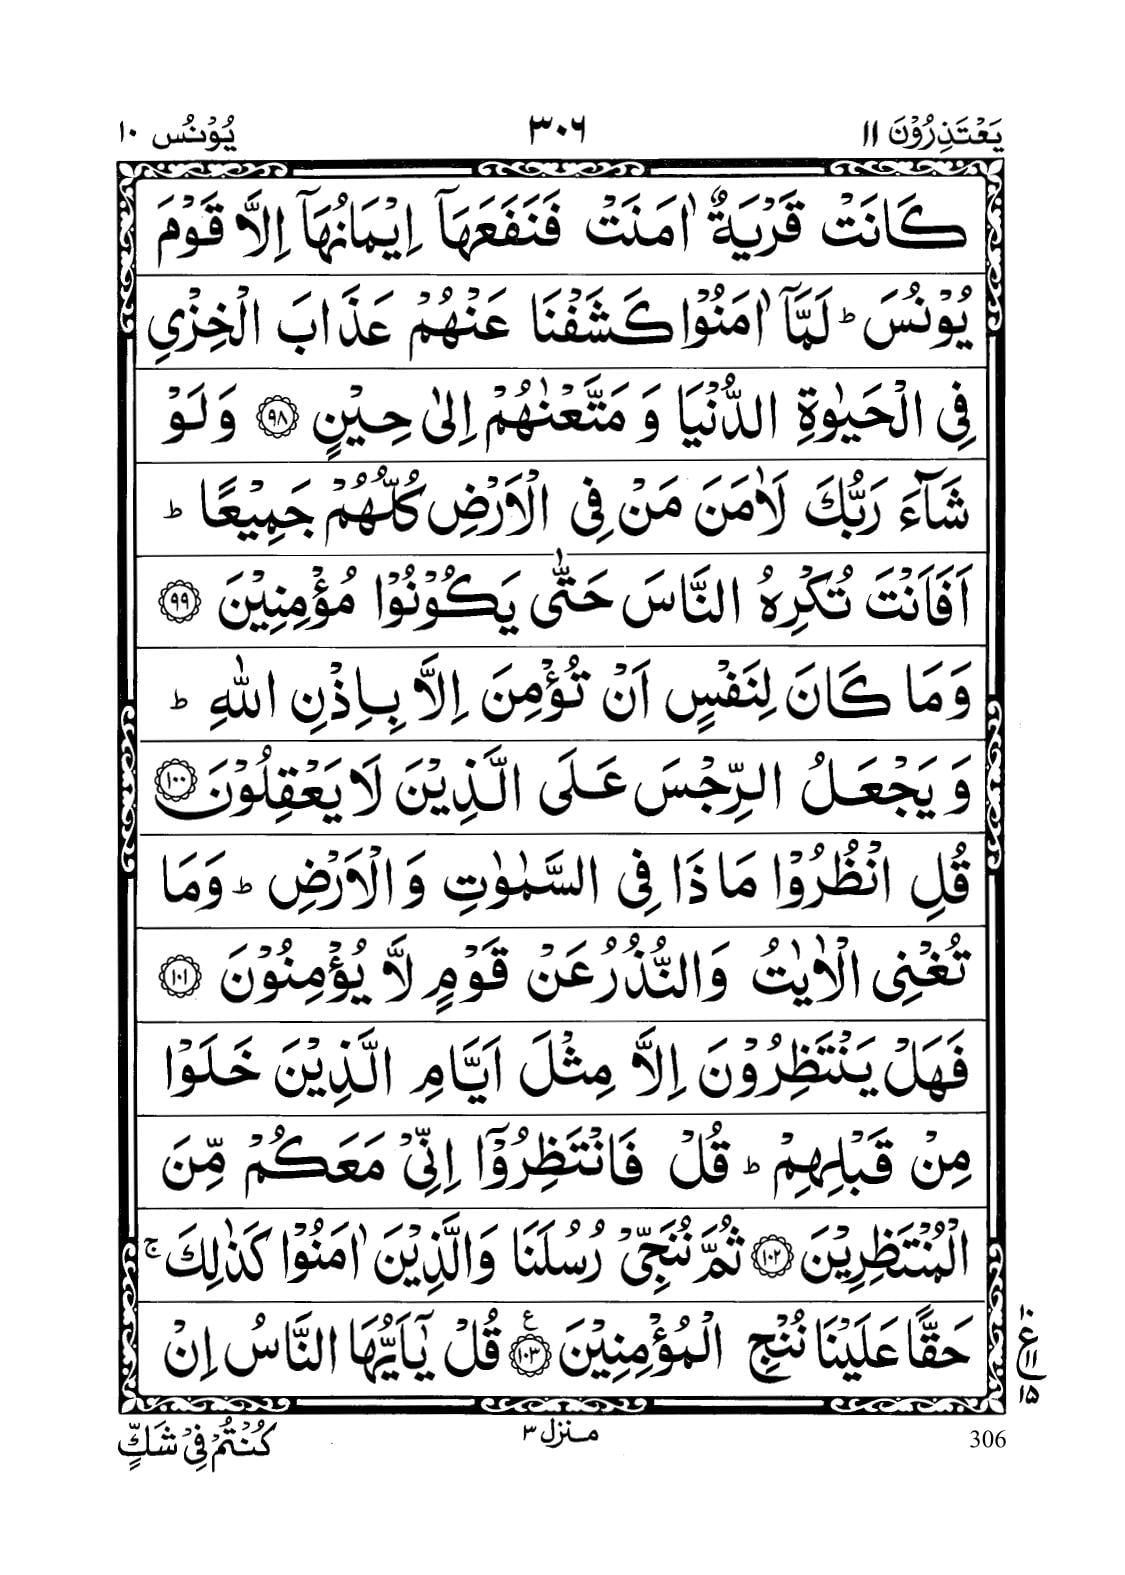 يَعْتَذِرُوْنَ ١١
٣٠٦
يُوْنُس ١٠
كَانَتْ قَرْيَةٌ اٰمَنَتْ فَنَفَعَهَاۤ اِيْمَانُهَاۤ اِلَّا قَوْمَ
يُوْنُسَ ؕ لَمَّاۤ اٰمَنُوْا كَشَفْنَا عَنْهُمْ عَذَابَ الْخِزْيِ
فِي الْحَيٰوةِ الدُّنْيَا وَ مَتَّعْنٰهُمْ اِلٰى حِيْنٍ ﴿٩٨﴾ وَ لَوْ
شَآءَ رَبُّكَ لَاٰمَنَ مَنْ فِي الْاَرْضِ كُلُّهُمْ جَمِيْعًا ؕ
اَفَاَنْتَ تُكْرِهُ النَّاسَ حَتّٰى يَكُوْنُوْا مُؤْمِنِيْنَ ﴿٩٩﴾
وَمَا كَانَ لِنَفْسٍ اَنْ تُؤْمِنَ اِلَّا بِاِذْنِ اللّٰهِ ؕ
وَ يَجْعَلُ الرِّجْسَ عَلَى الَّذِيْنَ لَا يَعْقِلُوْنَ ﴿١٠٠﴾
قُلِ انْظُرُوْا مَاذَا فِي السَّمٰوٰتِ وَ الْاَرْضِ ؕ وَمَا
تُغْنِي الْاٰيٰتُ وَالنُّذُرُ عَنْ قَوْمٍ لَّا يُؤْمِنُوْنَ ﴿١٠١﴾
فَهَلْ يَنْتَظِرُوْنَ اِلَّا مِثْلَ اَيَّامِ الَّذِيْنَ خَلَوْا
مِنْ قَبْلِهِمْ ؕ قُلْ فَانْتَظِرُوْۤا اِنِّيْ مَعَكُمْ مِّنَ
الْمُنْتَظِرِيْنَ ﴿١٠٢﴾ ثُمَّ نُنَجِّيْ رُسُلَنَا وَالَّذِيْنَ اٰمَنُوْا كَذٰلِكَ ۚ
حَقًّا عَلَيْنَا نُنْجِ الْمُؤْمِنِيْنَ ﴿١٠٣﴾ ع قُلْ يٰۤاَيُّهَا النَّاسُ اِنْ
١٠
ع
١١
١٥
كُنْتُمْ فِيْ شَكٍّ
منزل ٣
306